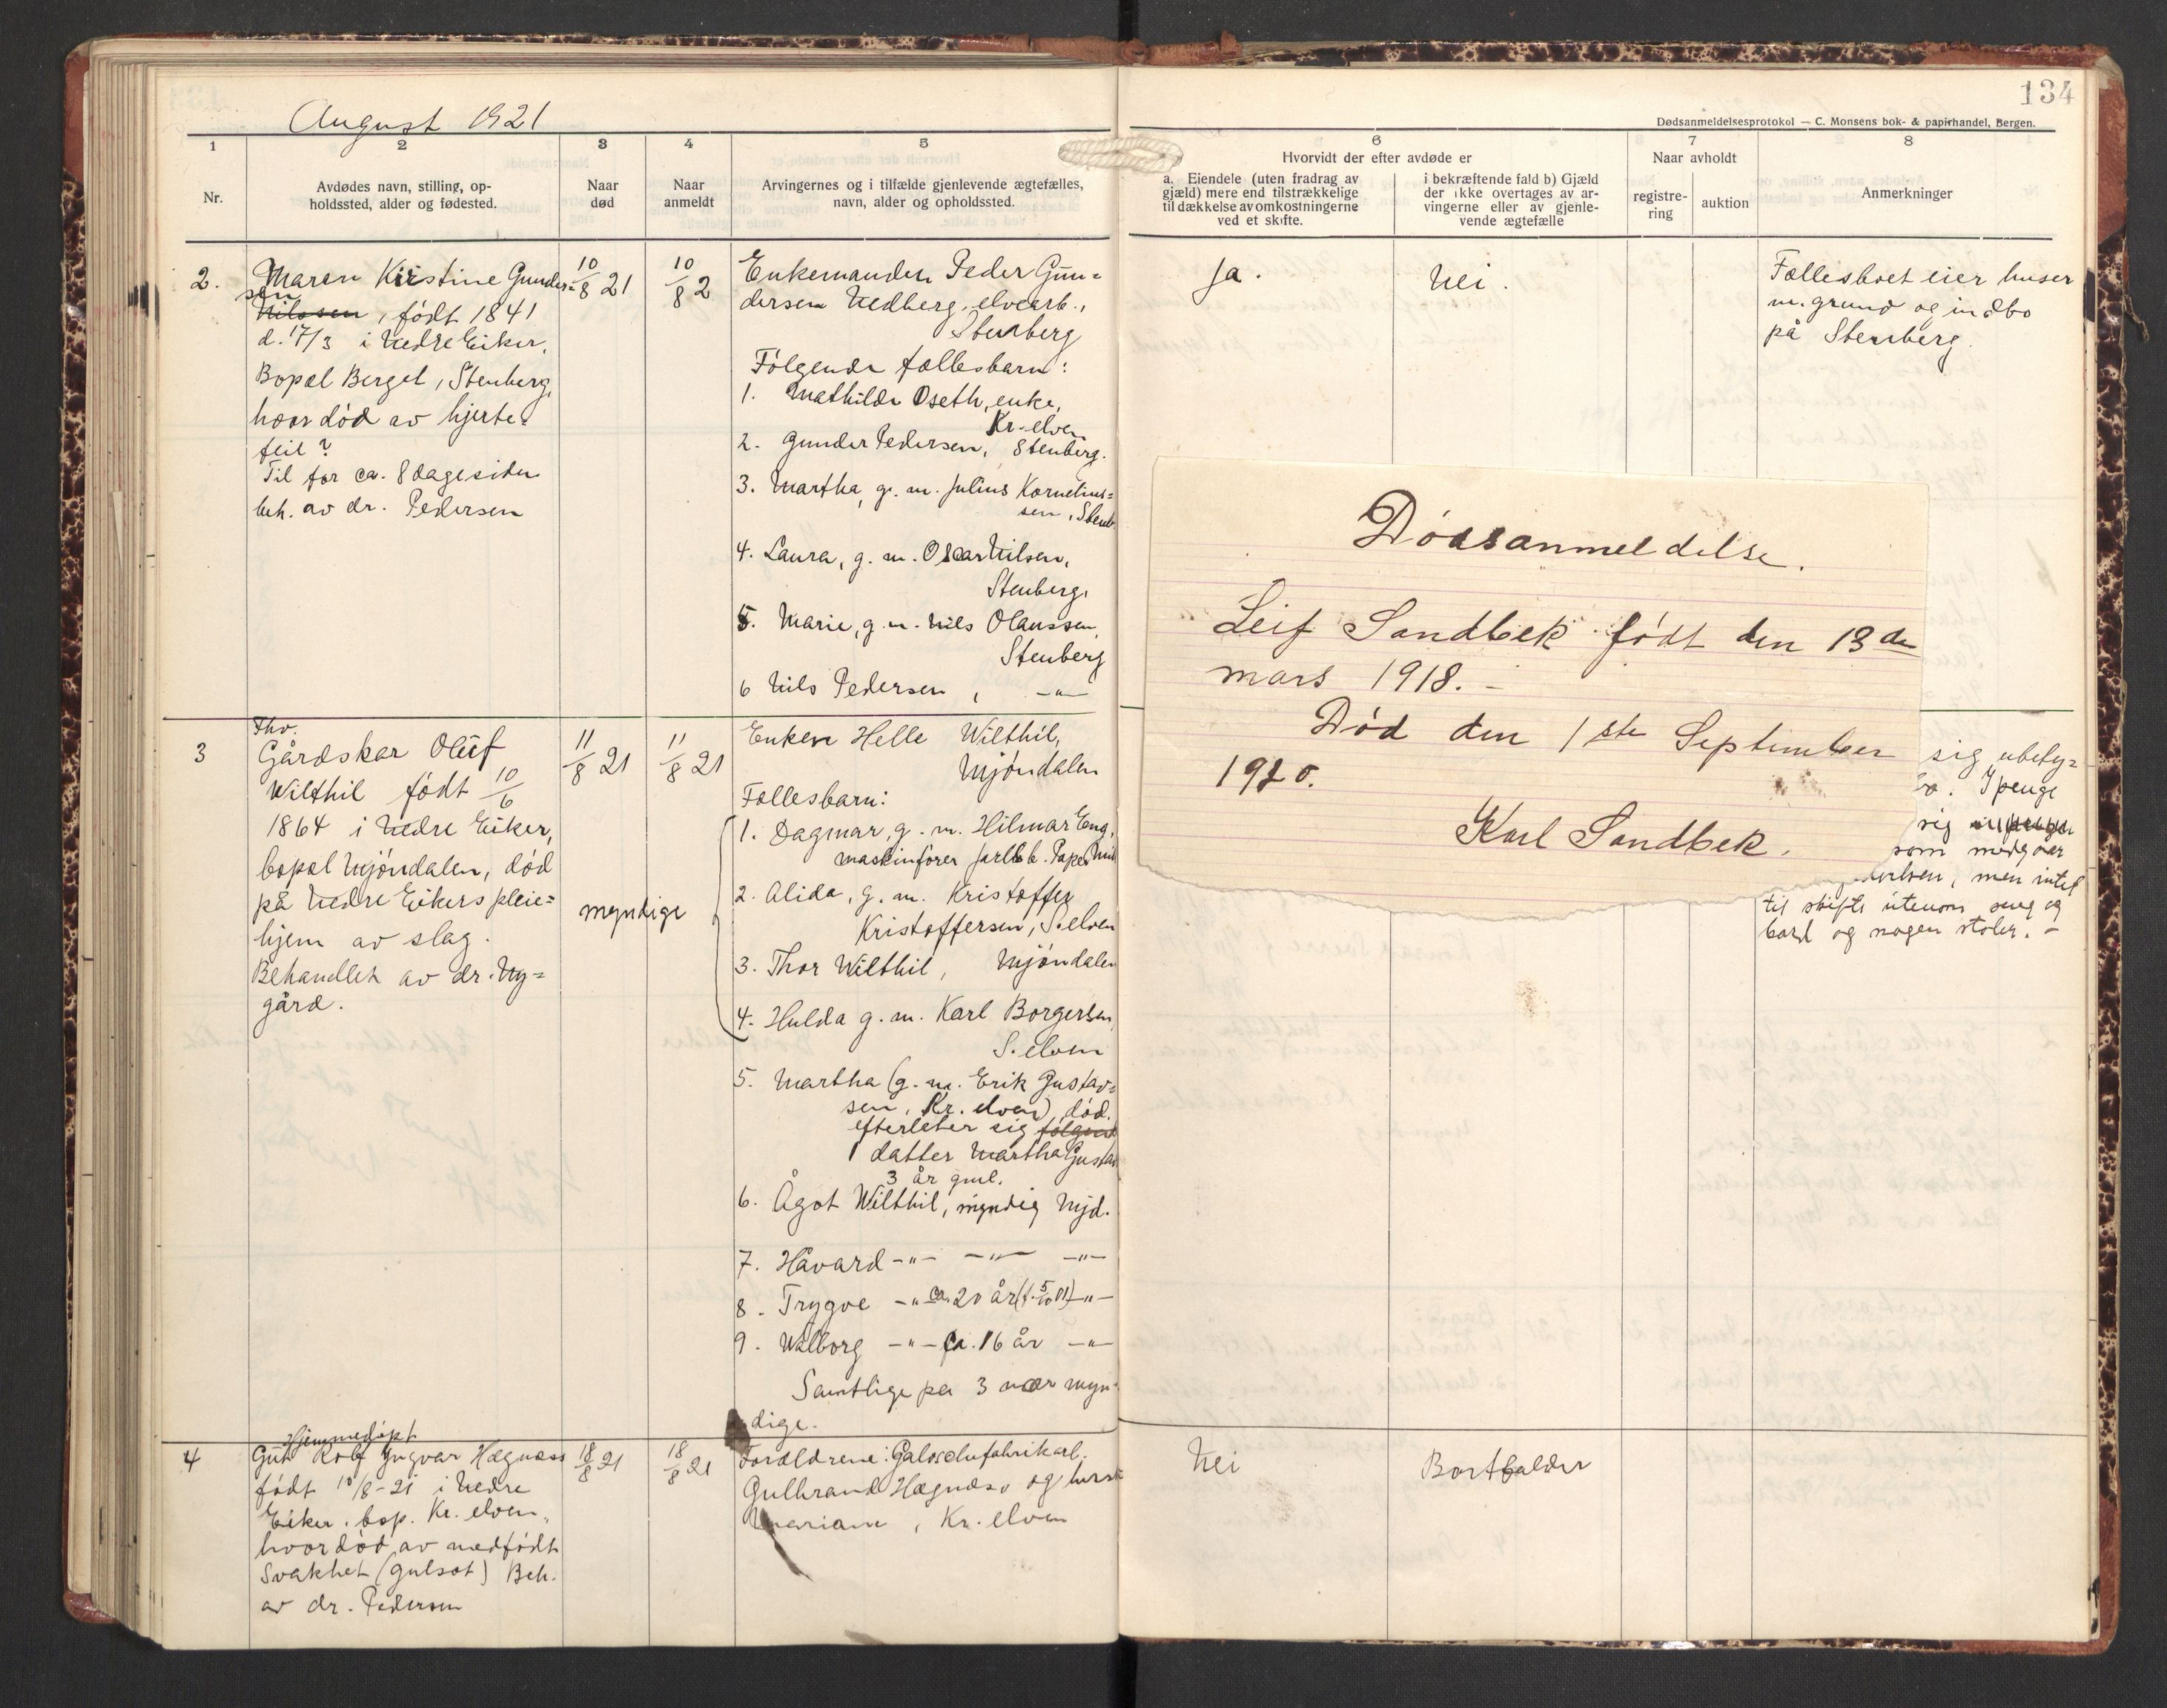 August 1921
134
Dødsanmeldelsesprotokol — C. Monsens bok- & papirhandel, Bergen.
1
2
3
4
5
6
7
8
Nr.
Avdødes navn, stilling, op-
holdssted, alder og fødested.
Naar
død
Naar
anmeldt
Arvingernes og i tilfælde gjenlevende ægtefælles,
navn, alder og opholdssted.
Hvorvidt der efter avdøde er
a. Eiendele (uten fradrag av
gjæld) mere end tilstrækkelige
til dækkelse av omkostningerne
ved et skifte.
i bekræftende fald b) Gjæld
der ikke overtages av ar-
vingerne eller av gjenle-
vende ægtefælle
Naar avholdt
registre-
ring
auktion
Anmerkninger
2.
Maren Kristine Gunder=
sen
Nilssen, født 1841
d. 17/3 i Nedre Eiker,
Bopæl Berget, Stenberg,
hvor død av hjerte=
feil?
Til for ca. 8 dage siden
beh. av dr. Pedersen
10/8 21
10/8 2
Enkemanden Peder Gun=
dersen Nedberg, elvearb.,
Stenberg
Følgende fællesbarn:
1. Mathilde Oseth, enke,
Kr-elven
2. Gunder Pedersen, Stenberg.
3. Martha, g. m. Julius Kornelius=
sen, Stenb
4. Laura, g. m. Oscar Nilsen,
Stenberg,
5. Marie, g. m. Nils Olaussen,
Stenberg
6 Nils Pedersen, -"-
Ja.
Nei.
Fællesboet eier huser
m. grund og indbo
på Stenberg.
3
Thv.
Gårdskar Oluf
Wilthil født 10/6
1864 i Nedre Eiker,
bopæl Mjøndalen, død
på Nedre Eikers pleie=
hjem av slag.
Behandlet av dr. Ny=
gård.
11/8 21
11/8 21
myndige
Enken Helle Wilthil,
Mjøndalen
Fællesbarn:
1. Dagmar, g. m. Hilmar Eng,
maskinfører Jarlsb. Paper Mill
2. Alida, g. m. Kristoffer
Kristoffersen, S.elven
3. Thor Wilthil, Mjøndalen
4. Hulda g. m. Karl Borgersen,
S. elven
5. Martha (g. m. Erik Gustav=
sen, Kr. elven), død.
efterlater sig følgend
1 datter Martha Gustav
3 år gml.
6. Ågot Wilthil, myndig Mjd.
7. Håvard -"- -"- -"-
8. Trygve -"- ca. 20 år (f. 5/10 01) -"-
9. Walborg -"- ca. 16 år -"-
Samtlige på 3 nær myn-
dige.
Dødsanmeldelse.
Leif Sandbek født den 13de
mars 1918. -
Død den 1ste September
1920.
Karl Sandbek.
sig ubety=
I penge
sig
som medgaar
men intet
til skifte utenom seng og
bord og nogen stoler. -
4
Hjemmedøpt
Gut Rolf Yngvar Hægnæss
født 10/8-21 i Nedre
Eiker. bop. Kr. elven,
hvor død av medfødt
Svakhet (gulsot) Beh.
av dr. Pedersen
18/8 21
18/8 21
Forældrene: Galoschefabrikarb.
Gulbrand Hægnæss og hustr
Mariane, Kr. elven
Nei
Bortfalder